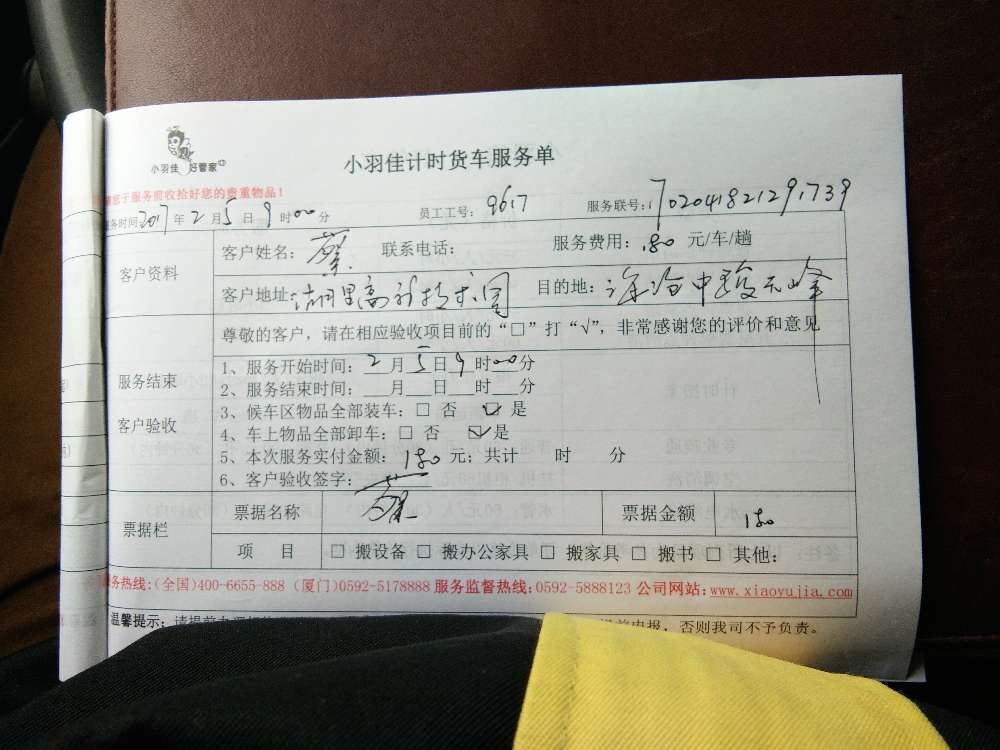 小羽佳 好管家
小羽佳计时货车服务单
于服务前收拾好您的贵重物品！
务时间:2017年2月5日9时00分 员工工号: 9617 服务联号:1702041821291739
客户资料
客户姓名: 蔡 联系电话: 服务费用: 180 元/车/趟
客户地址: 湖里高新技术园 目的地: 中骏天峰
尊敬的客户，请在相应验收项目前的“□”打“√”，非常感谢您的评价和意见
服务结束
客户验收
1、服务开始时间: 2月5日9时00分
2、服务结束时间: 月 日 时 分
3、候车区物品全部装车: □ 否 ☑ 是
4、车上物品全部卸车: □ 否 ☑ 是
5、本次服务实付金额: 180 元; 共计 时 分
6、客户验收签字: 蔡
票据栏
票据名称 票据金额 180
项 目 □ 搬设备 □ 搬办公家具 □ 搬家具 □ 搬书 □ 其他:
务热线:(全国)400-6655-888 (厦门)0592-5178888 服务监督热线:0592-5888123 公司网站:www.xiaoyujia.com
温馨提示: 请提前 申报，否则我司不予负责。